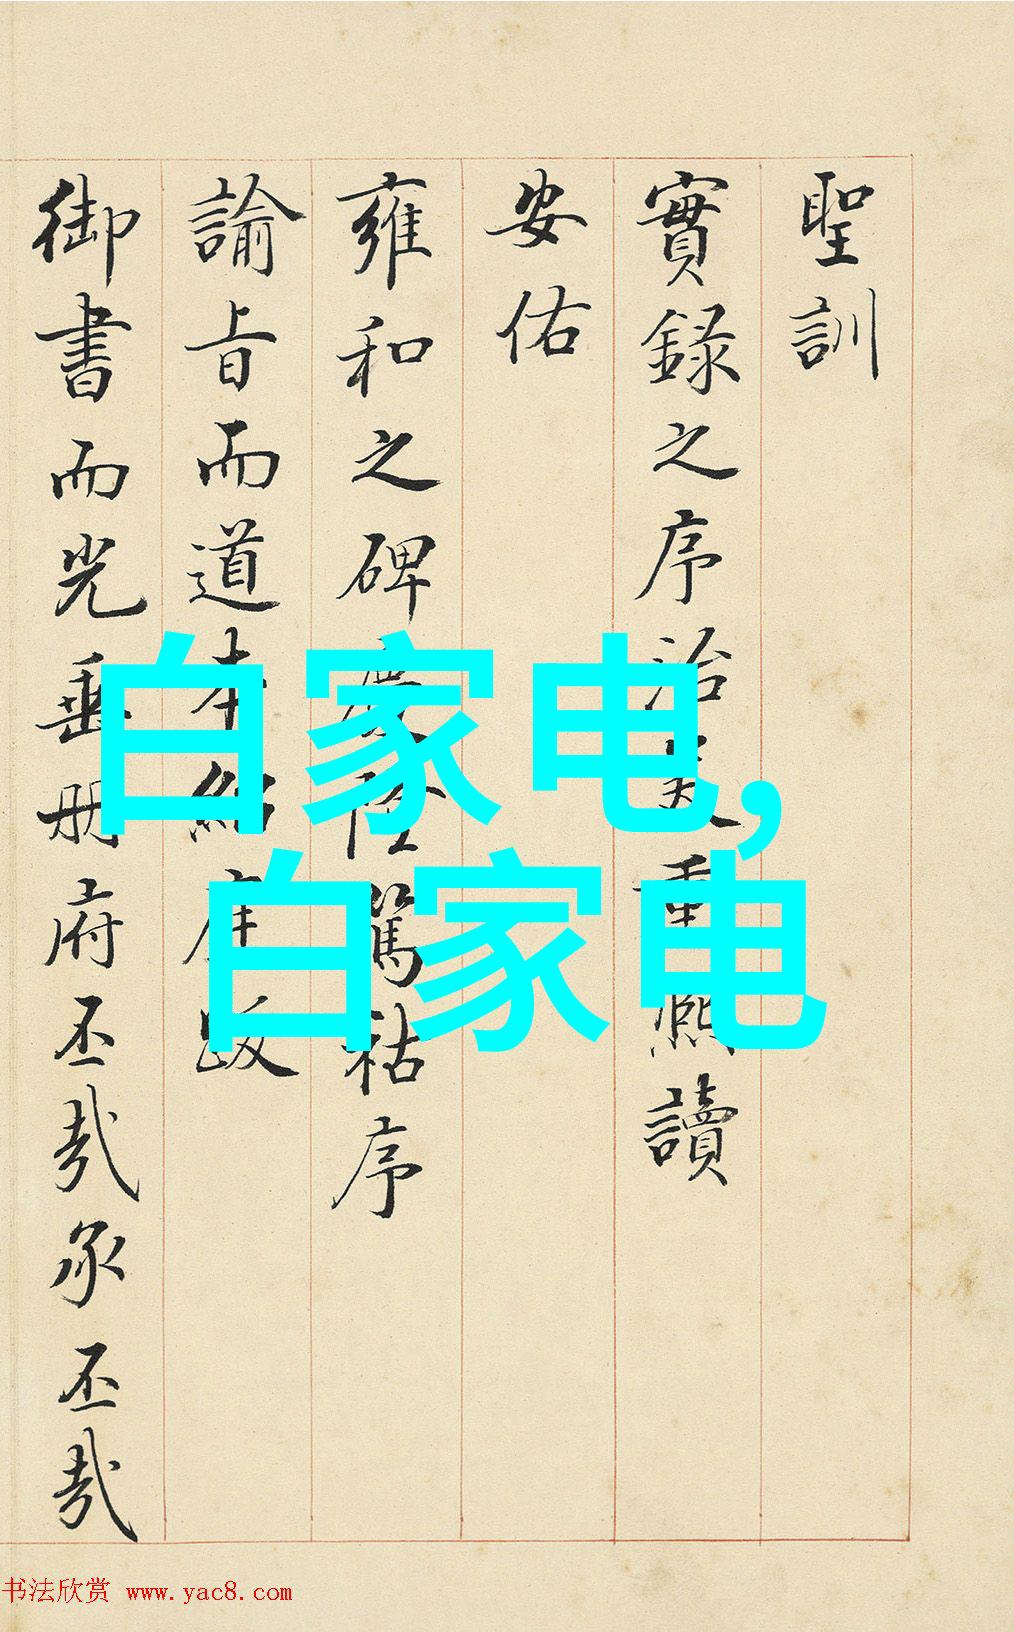 聖訓
實錄之序治重熙讀
安佑
雍和之碑慶陛篤祜序
諭旨而道本紹庭跋
御書而光垂册府丕哉永丕哉
白家电,
白家电
书法欣赏 www.yac8.com